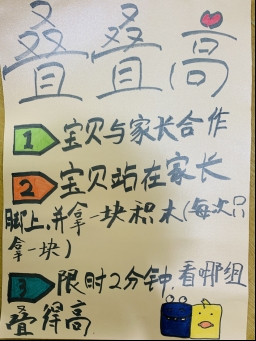 叠叠高
1 宝贝与家长合作
2 宝贝站在家长
脚上,并拿一块积木(每次只
拿一块)
3 限时2分钟,看哪组
叠得高